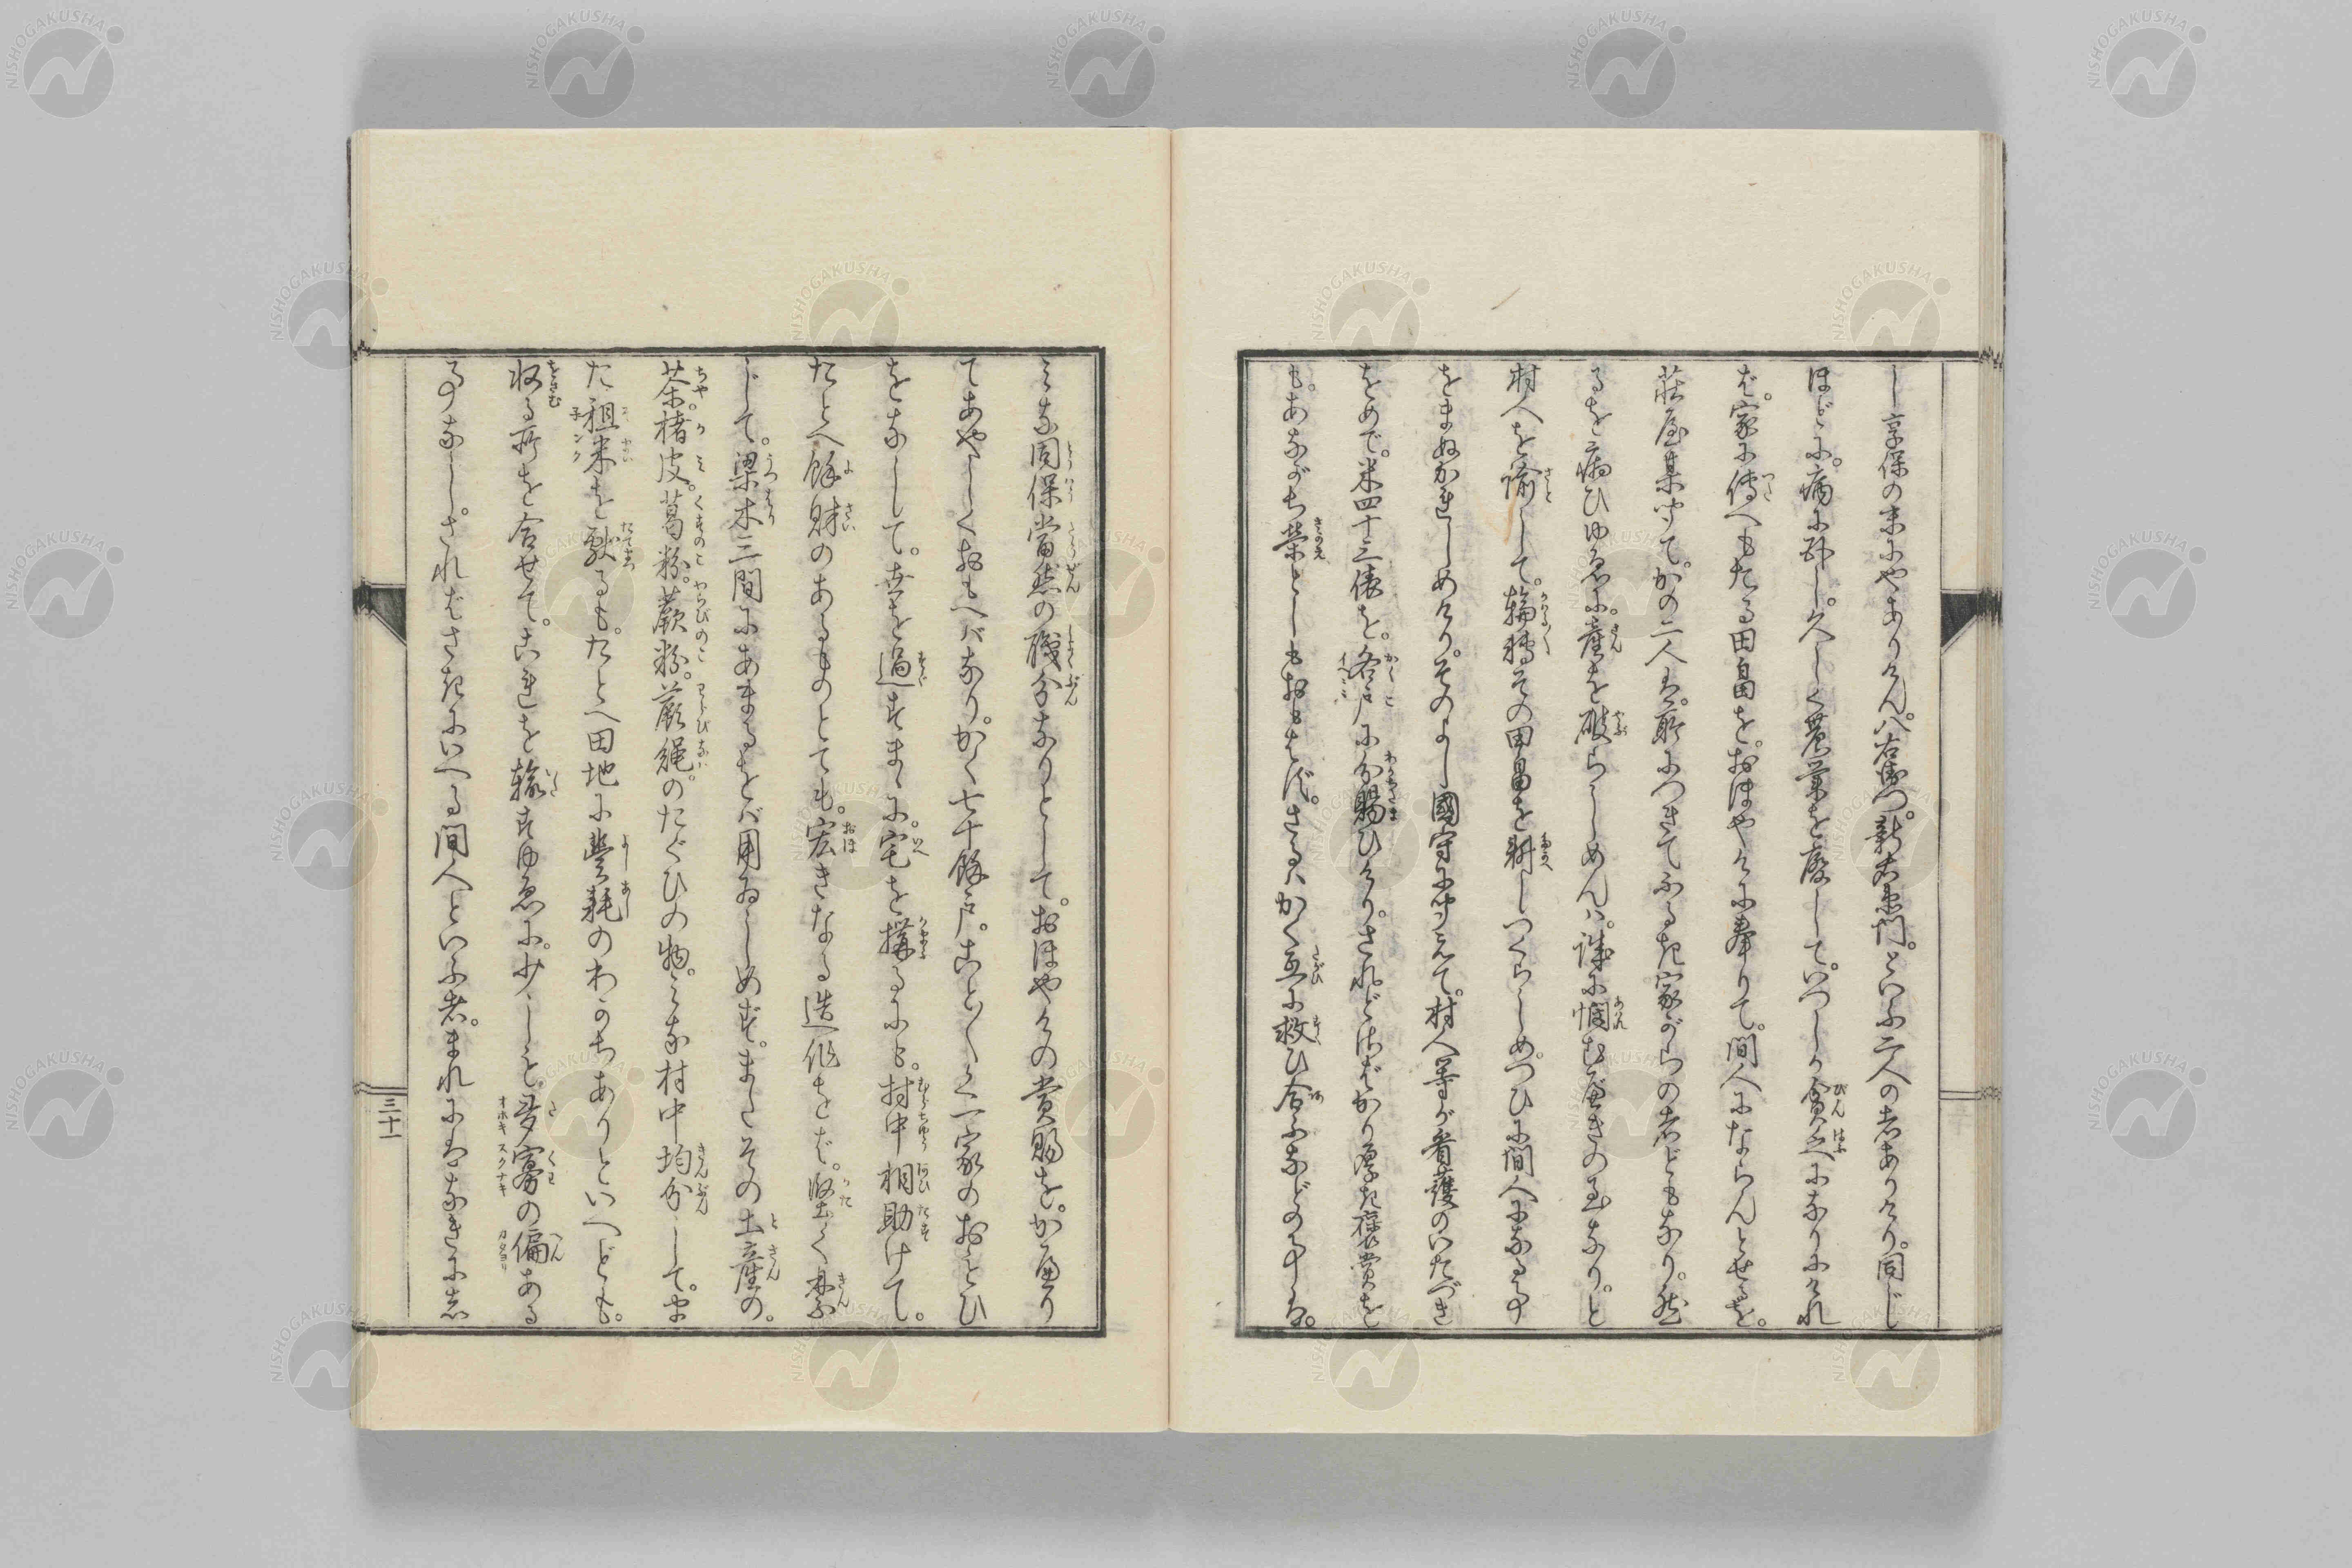 し享保の末にやありけん。八右衛門。新右衛門。といふ二人の者ありけり。同じ
ほどに。病に臥し。久しく農業を廃して。いつしか貧乏になりにけれ
ば。家に傳へもたる田畠を。おほやけに奉りて。間人にならんとせしを。
荘屋某聞て。かの二人は。所につきてふるき家がらの者どもなり。然
るを病ひゆゑに。産を破らしめんハ。誠に憫むべきの至なり。と
村人を諭して。輪轉その田畠を耕しつくらしめ。つひに間人になる事
をまぬかれしめけり。そのよし國守に聞えて。村人等が看護のいたづき
をめで。米四十三俵を。各戸に分賜ひけり。されどさばかり厚き褒賞を
も。あながち榮としもおもはず。さるハかく互に救ひ合ふなどの事は。
みな同保當然の職分なりとして。おほやけの賞賜を。かへり
てあやしくおもへバなり。かく七十餘戸。ことごとく一家のおもひ
をなして。世を過すまゝに。宅を構るにも。村中相助けて。
たとへ餘財のあるものとても。宏きなる造作をば。堅く禁
じて。梁木三間にあまるをバ用ゐしめず。またその土産の。
茶。楮皮。葛粉。蕨粉。蕨縄。のたぐひの物。みな村中均分して。ま
た租米を献るも。たとへ田地に豊耗のわかちありといへども。
収る所を合せて。これを輸すゆゑに。少しも。多寡の偏ある
事なし。さればさきにいへる間人といふ者。まれにはなきにし
三十一